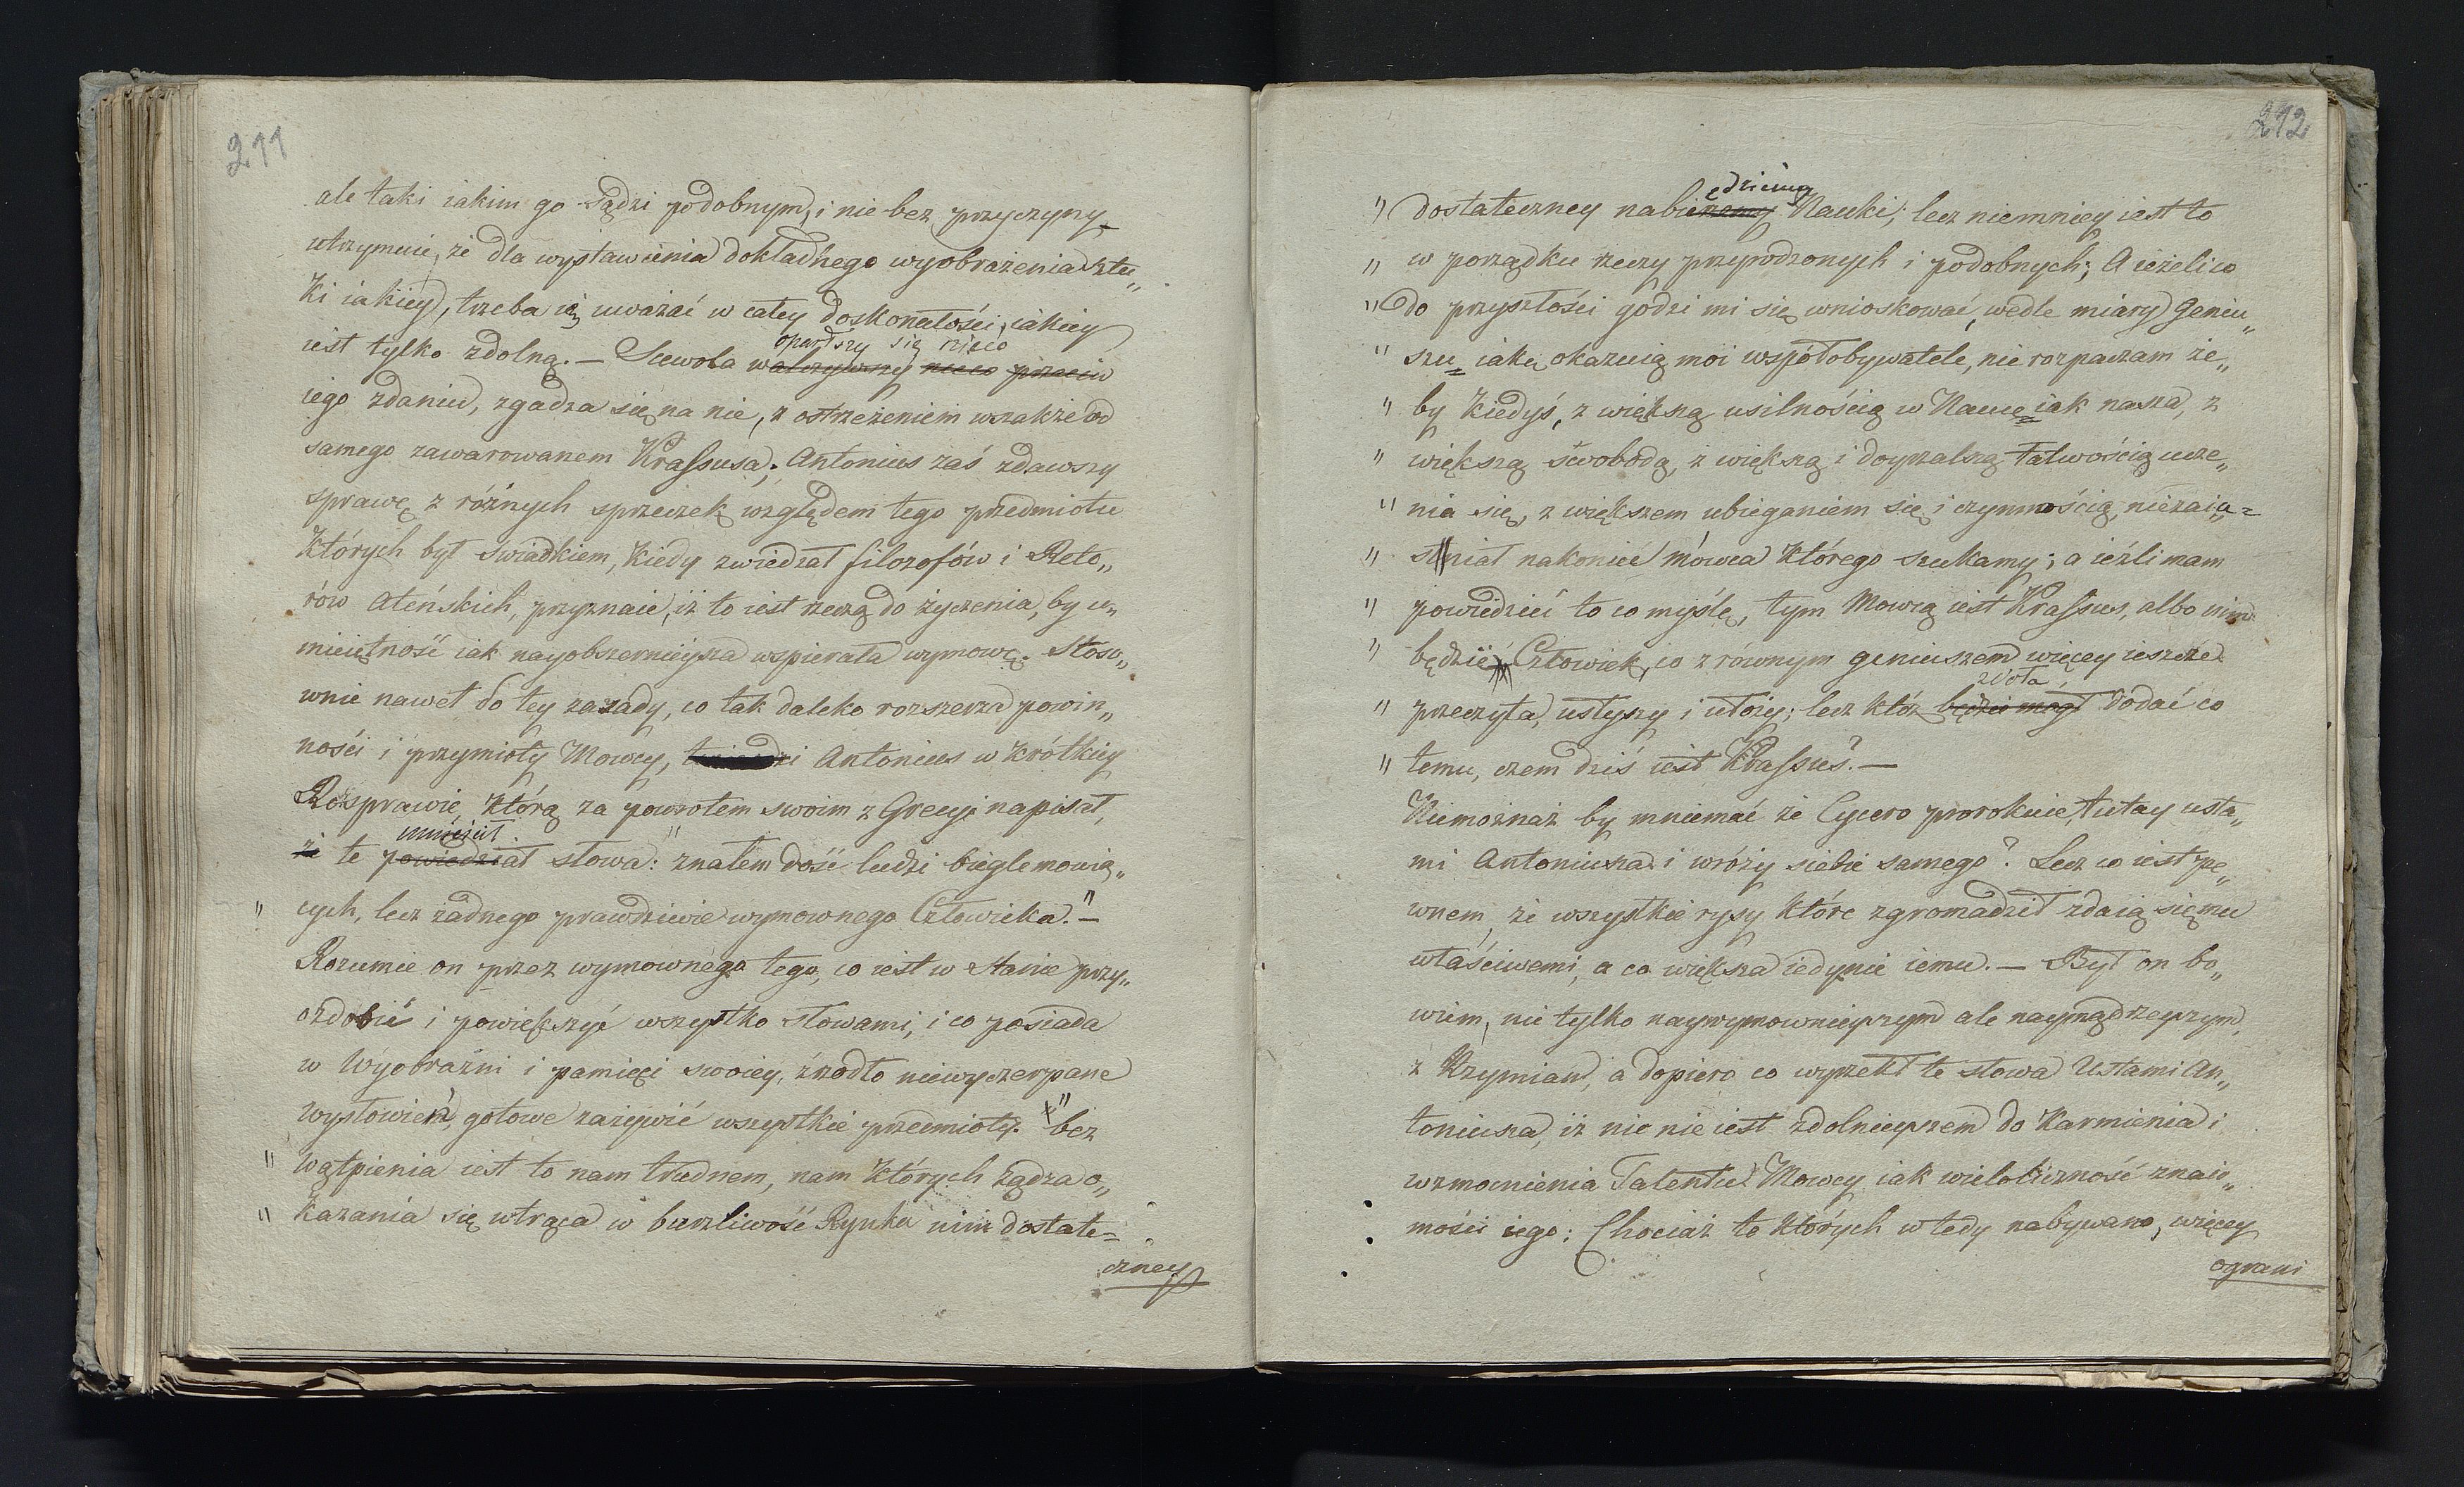 211
ale taki iakim go sądzi podobnym, i nie bez przyczyny
utrzymuie, że dla wystawienia dokładnego wyobrażenia sztu„
ki iakiey, trzeba ią uważać w całey doskonałości, iakiey
oparłszy się nieco
iest tylko zdolną. — Scewola walczywszy nieco przeciw
iego zdaniu, zgadza się na nie, z ostrzeżeniem wszakże od
samego zawarowanem Krassusa; Antonius zaś zdawszy
sprawę z różnych sprzeczek względem tego przedmiotu
których był swiadkiem, kiedy zwiedzał filozofów i Reto„
rów Ateńskich, przyznaie, iż to iest rzeczą do życzenia, by u„
mieiętność iak nayobszernieysza wspierała wymowę. Stoso„
wnie nawet do tey zasady, co tak daleko rozszerza powin„
ności i przymioty Mowcy, twierdzi Antonius w krótkiey
Rosprawie, którą za powrotem swoim z Grecyi napisał,
umieścił
że te powiedział słowa: " znałem dość ludzi biegle mowią„
" cych, lecz żadnego prawdziwie wymownego Człowieka." —
Rozumie on przez wymownego tego, co iest w stanie przy„
ozdobić i powiększyć wszystko słowami, i co posiada
w Wyobraźni i pamięci swoiey, źrodło niewyczerpane
wysłowień, gotowe zażywić wszystkie przedmioty. " bez
" wątpienia iest to nam trudnem, nam których żądza o„
" kazania się wtrąca w burzliwość Rynku nim dostate=
czney
212
ędzioney
" dostateczney nabieżemy Nauki; lecz niemniey iest to
" w porządku rzeczy przyrodzonych i podobnych; A ieżeli co
" do przyszłości godzi mi się wnioskować, wedle miary Geniu„
" szu iaką okazuią moi współobywatele, nie rozpaczam że„
" by kiedyś, z większą usilnością w Nauce iak nasza, z
" większą swobodą, z większą i doyrzalszą łatwością ucze„
" nia się, z większem ubieganiem się i czynnością, niezaia=
" śniał nakoniec mówca którego szukamy; a ieźli mam
" powiedzieć to co myślę, tym Mowcą iest Krassus, albo nim
" będzie Człowiek, co z równym geniuszem więcey ieszcze
zdoła
" przeczyta, usłyszy i ułoży; lecz któż będzie mógł dodać co
" temu, czem dziś iest Krassus? —
Niemożnaż by mniemać że Cycero prorokuie, tutay usta„
mi Antoniusza i wróży siebie samego? Lecz co iest pe„
wnem, że wszystkie rysy które zgromadził zdaią się mu
właściwemi, a co większa iedynie iemu. — Był on bo„
wiem, nie tylko naywymownieyszym ale naymądrzeyszym,
z Rzymian, a dopiero co wyrzekł te słowa Ustami An„
toniusza, iż nic nie iest zdolnieyszem do karmienia i
wzmocnienia Talentu Mowcy iak wieloliczność znaio„
mości iego; Chociaż te których wtedy nabywano, więcey
ograni